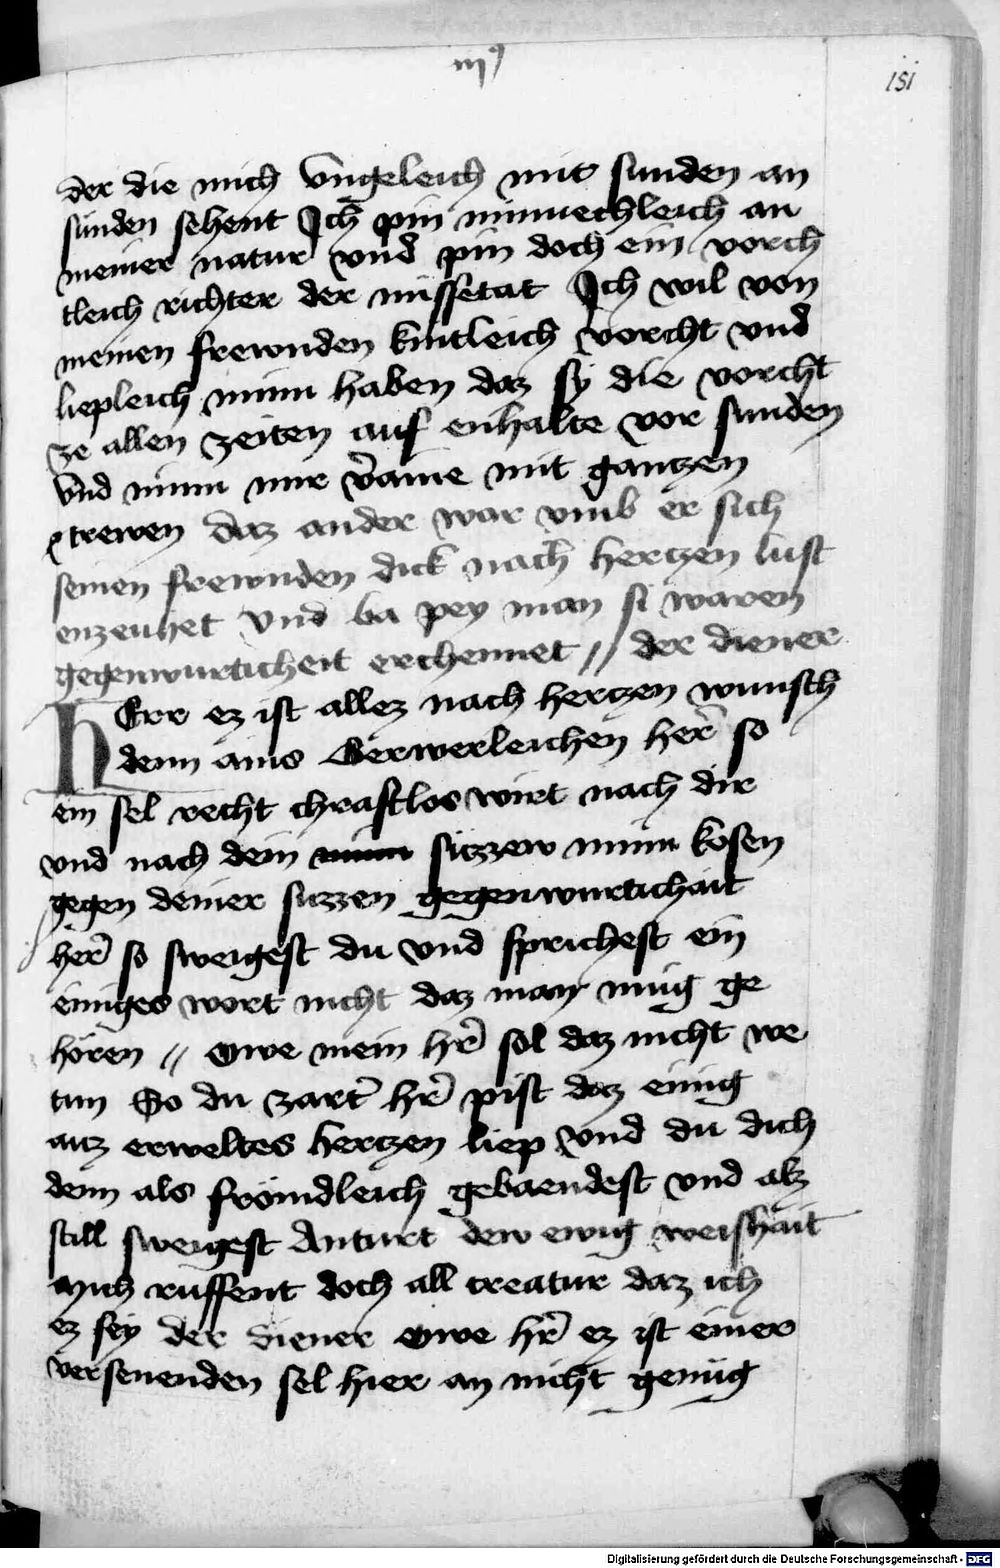 iij
151
der die mich Vngeleich mit sunden an
sunden sehent Ich pin minnechleich an
meiner natur vnd pin doch ein vorch
tleich richter der missetat Ich wil von
meinen frewnden kintleich vorcht vnd
liepleich minn haben daz sy die vorcht
ze allen zeiten auf enhalte vor sunden
Vnd minn mir v̄aine mit gantzen
trewen daz ander war vmb er sich
seinen frewnden dick nach hertzen lust
enzeuhet Vnd ba pey man si waren
gegenwurticheit erchennet // der diener
HErr ez ist allez nach hertzen wunsch
denn ains Gerwerleichen her̄ so
ein sel recht chraftlos wirt nach dir
vnd nach dein minn sizzew minn kosen
gegen deiner suzzen gegenwurtichait
her̄ so sweigest du vnd sprichest ein
einiges wort nicht daz man mug ge
hören // Owe mein hr̄ sol daz nicht we
tun So du zart̄ hr̄ pist daz einig
auz erweltes hertzen liep vnd du dich
denn als frömdleich gebaendest vnd alz
still sweigest Anturt dew ewig weishait
Mich ruffent doch all creatur daz ich
ez sey der diener owe hr̄ ez ist einer
versenenden sel hier an nicht genug
Digitalisierung gefördert durch die Deutsche Forschungsgemeinschaft - DFG